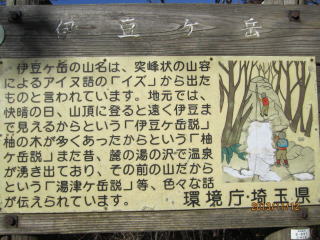 伊豆ケ岳
伊豆ケ岳の山名は、突峰状の山容
によるアイヌ語の「イズ」から出た
ものと言われています。地元では、
快晴の日、山頂に登ると遠く伊豆ま
で見えるからという「伊豆ケ岳説」
柚の木が多くあったからという「柚
ケ岳説」また昔、麓の湯の沢で温泉
が湧き出ており、その前の山だから
という「湯津ケ岳説」等、色々な話
が伝えられています。
環境庁・埼玉県